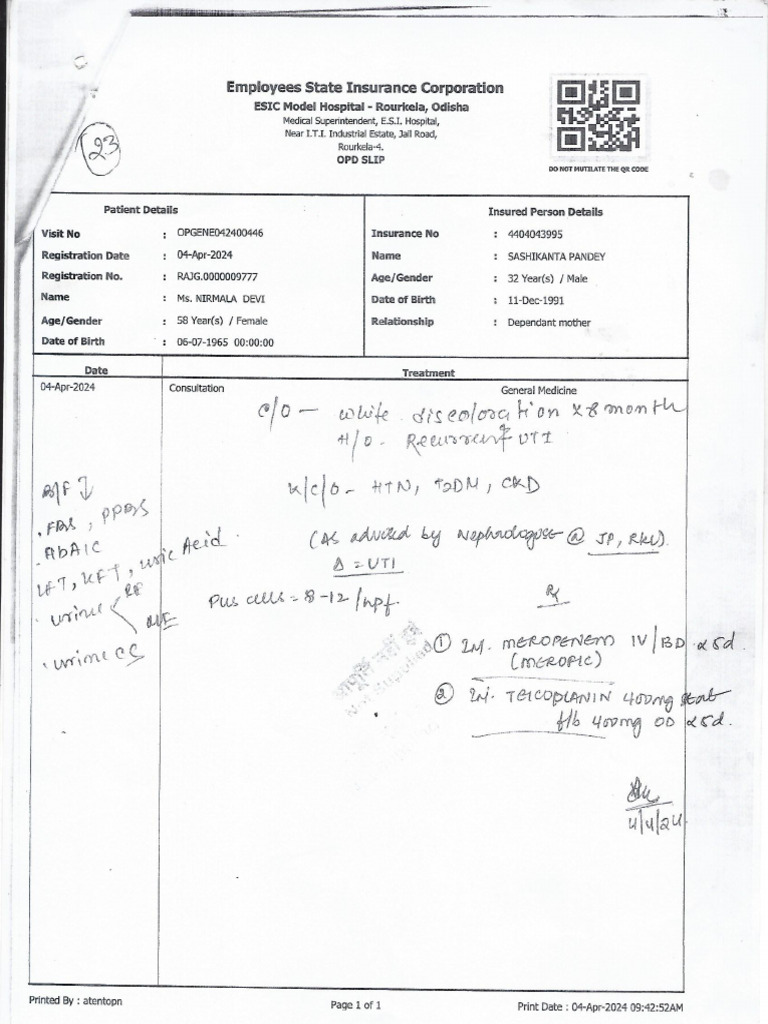 23
Employees State Insurance Corporation
ESIC Model Hospital - Rourkela, Odisha
Medical Superintendent, E.S.I. Hospital,
Near I.T.I. Industrial Estate, Jail Road,
Rourkela-4.
OPD SLIP
DO NOT MUTILATE THE QR CODE
Patient Details
Visit No : OPGENE042400446
Registration Date : 04-Apr-2024
Registration No. : RAJG.0000009777
Name : Ms. NIRMALA DEVI
Age/Gender : 58 Year(s) / Female
Date of Birth : 06-07-1965 00:00:00
Insured Person Details
Insurance No : 4404043995
Name : SASHIKANTA PANDEY
Age/Gender : 32 Year(s) / Male
Date of Birth : 11-Dec-1991
Relationship : Dependant mother
Date Treatment
04-Apr-2024 Consultation General Medicine
C/O - White discoloration x 8 month
H/O - Recurrent UTI
K/C/O - HTN, T2DM, CKD
(As advised by Nephrologist @ JP, RKL).
Δ = UTI
Pus cells = 8-12 /hpf.
↓
. FBS, PPBS
. HbA1C
LFT, KFT, Uric Acid
. urine < RE
ME
. urine CS
Rx
① Inj. MEROPENEM IV/BD x 5d.
(MEROPIC)
② Inj. TEICOPLANIN 400mg stat
f/b 400mg OD x 5d.
Not Supplied
4/4/24
Printed By : atentopn
Page 1 of 1
Print Date : 04-Apr-2024 09:42:52AM